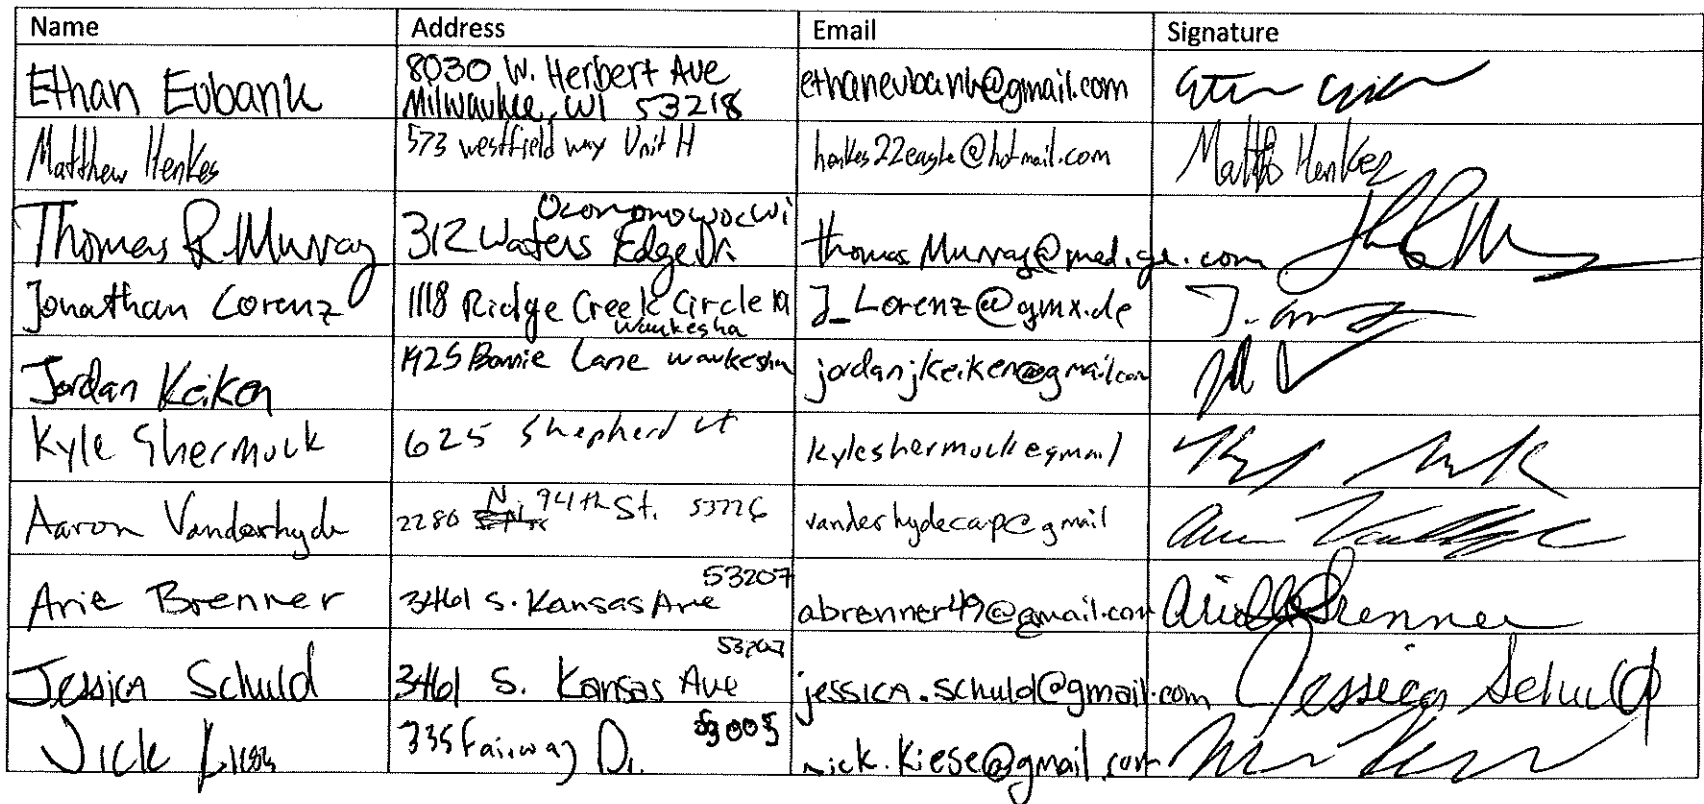 Name Address Email Signature
Ethan Eubank 8030 W. Herbert Ave ethaneubank@gmail.com
Milwaukee, WI 53218
Matthew Henkes 573 westfield way Unit H henkes22eagle@hotmail.com Matth Henkes
Oconomowoc Wi
Thomas R. Murray 312 Waters Edge Dr. thomas Murray@med.ge.com
Jonathan Lorenz 1118 Ridge Creek Circle J_Lorenz@gmx.de
Waukesha
Jordan Keiken 1925 Bonnie Lane Waukesha jordanjkeiken@gmail.com
Kyle Shermock 625 Shepherd ct kyleshermock@gmail
Aaron Vanderhyde 2280 N. 94th St. 53226 vanderhydecap@gmail
53207
Arie Brenner 3461 S. Kansas Ave abrenner49@gmail.com Brenner
53207
Jessica Schuld 3461 S. Kansas Ave jessica.schuld@gmail.com Jessica Schuld
Nick 335 Fairway Dr. 53005 nick.kiese@gmail.com